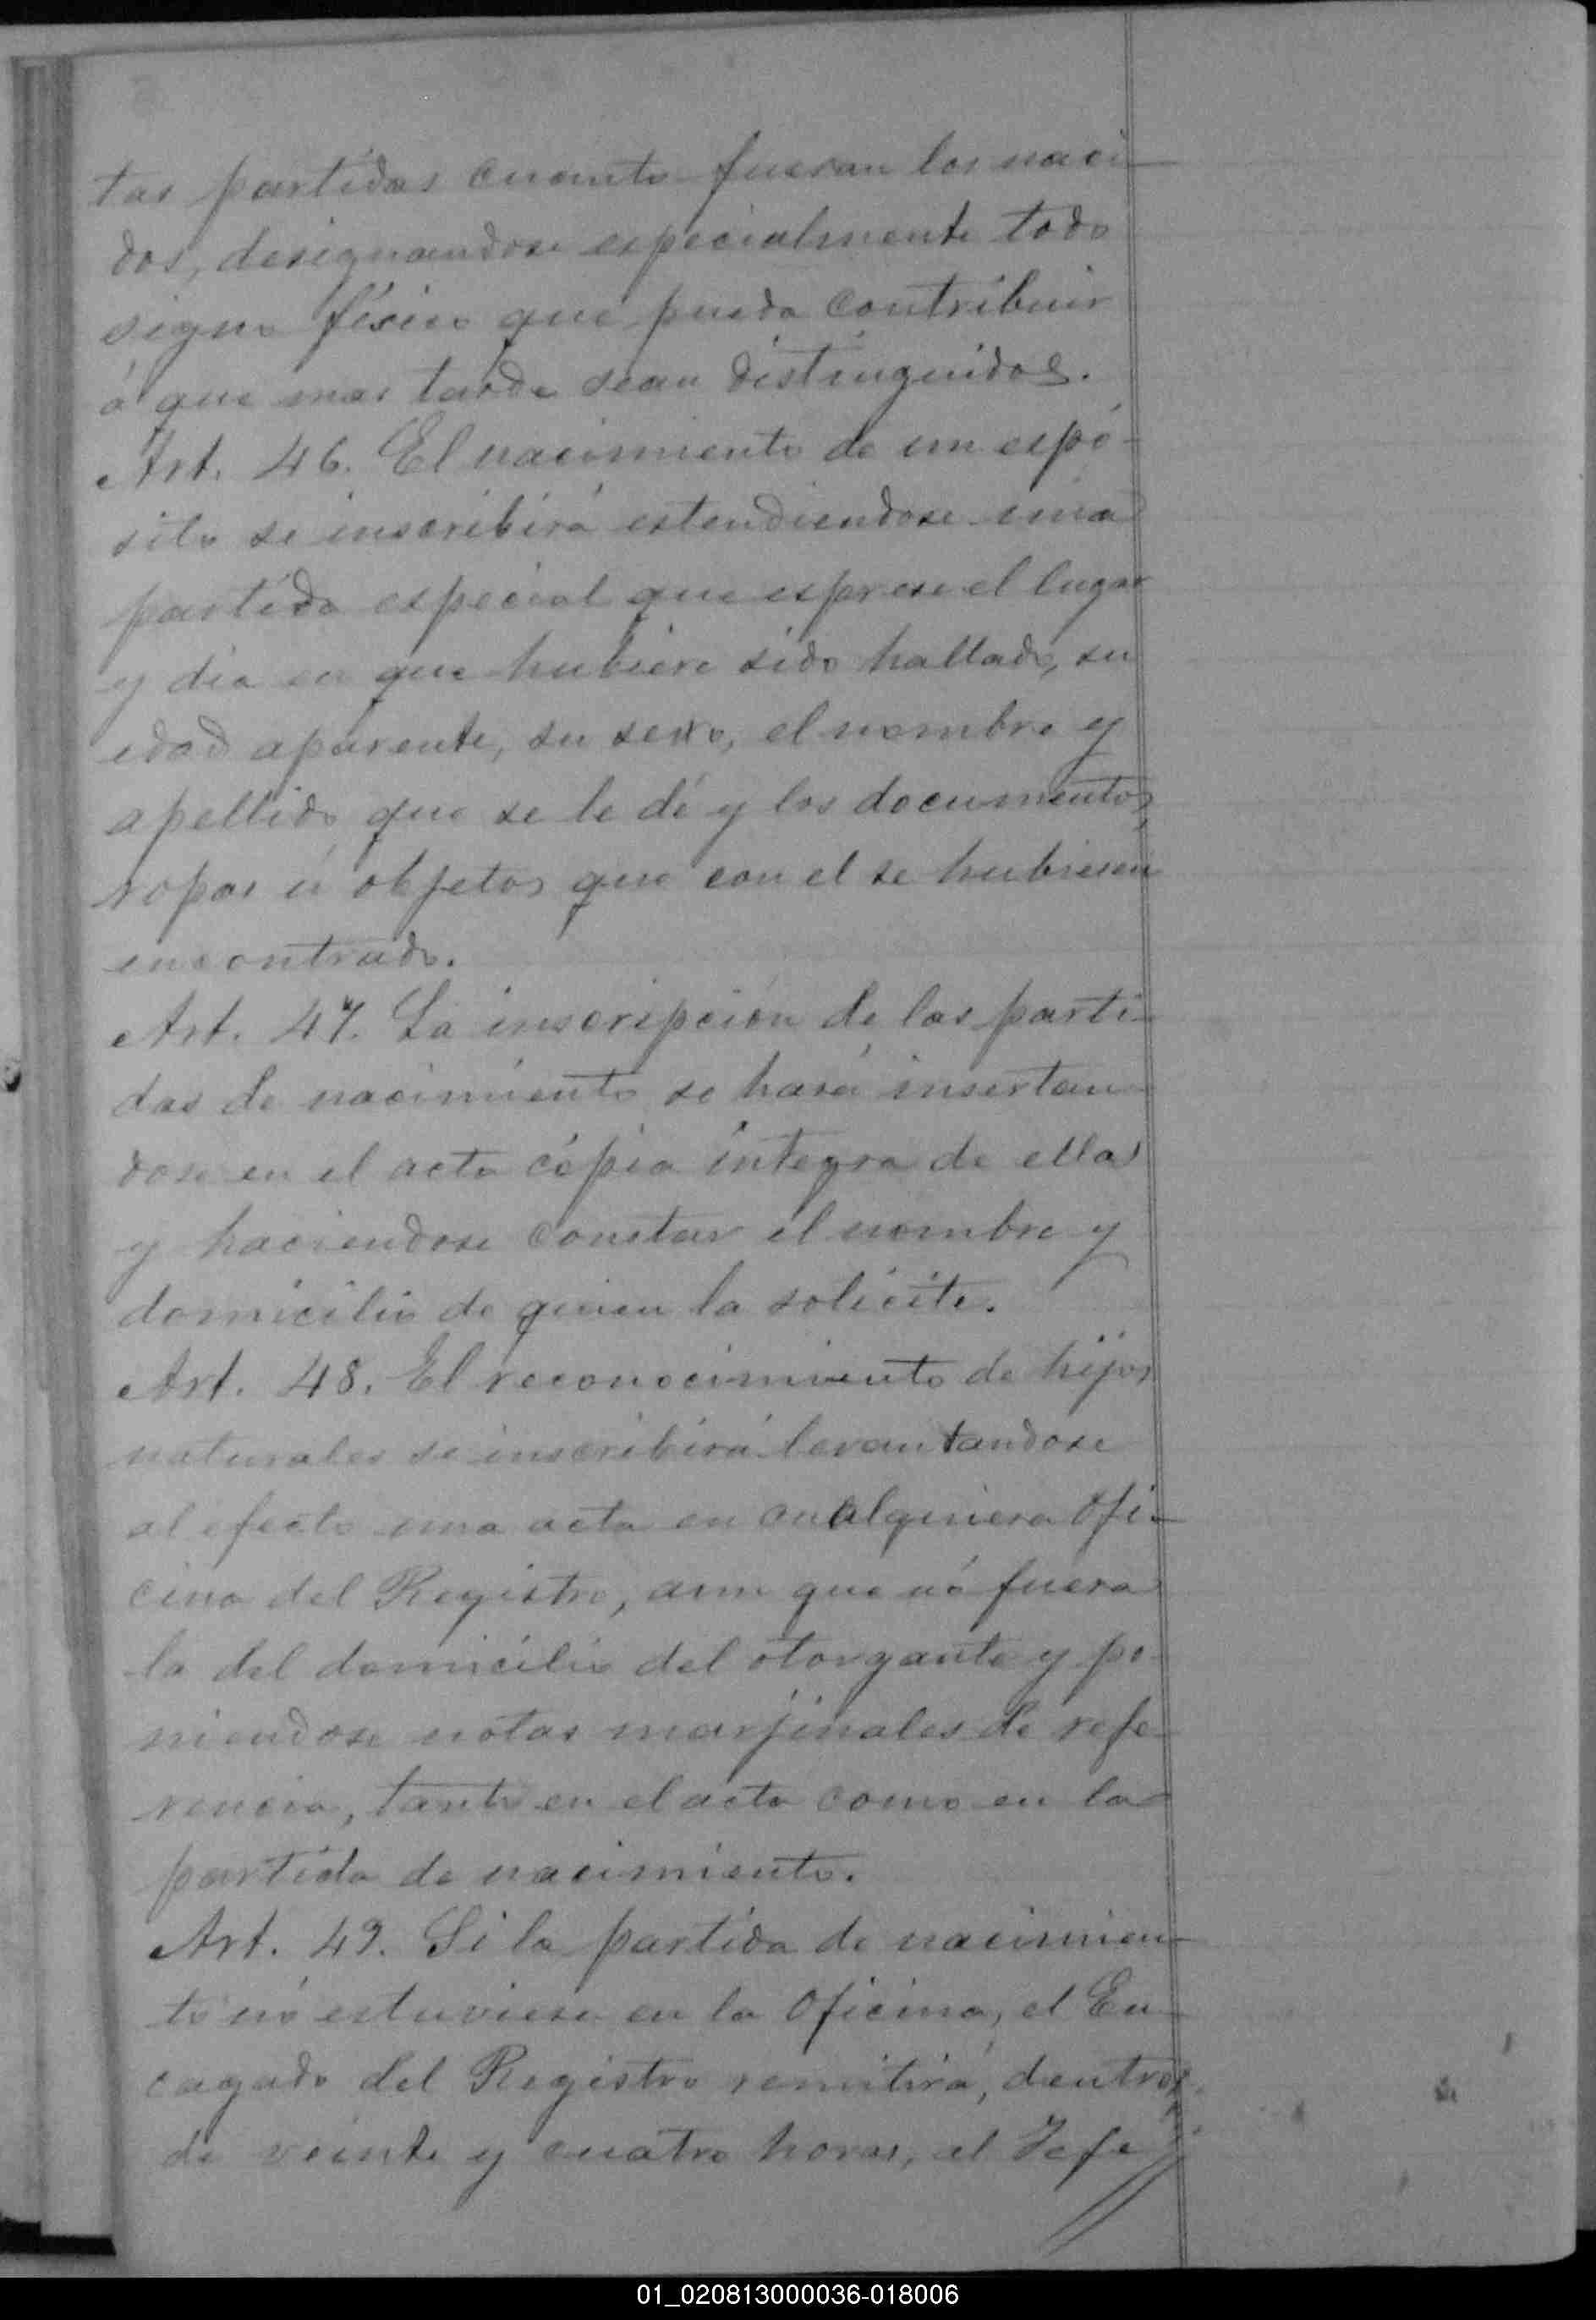 tas partidas cuanto fueran los naci-
dos, designandose especialmente todo
signo físico que pueda contribuir
á que mas tarde sean distinguidos.
Art. 46. El nacimiento de un espó-
sito se inscribirá estendiendose una
partida especial que esprese el lugar
y dia en que hubiere sido hallado, su
edad aparente, su sexo, el nombre y
apellido que se le dé y los documentos,
ropas ú objetos que con el se hubiesen
encontrado.
Art. 47. La inscripción de las parti-
das de nacimiento se hará insertan-
dose en el acta cópia íntegra de ellas
y haciendose constar el nombre y
domicilio de quien la solicite.
Art. 48. El reconocimiento de hijos
naturales se inscribirá levantandose
al efecto una acta en cualquiera Ofi-
cina del Registro, aun que nó fuera
la del domicilio del otorgante y po-
niendose notas marjinales de refe-
rencia, tanto en el acta como en la
partida de nacimiento.
Art. 49. Si la partida de nacimien-
to nó estuviese en la Oficina, el En-
cagado del Registro remitirá, dentro
de veinte y cuatro horas, al Jefe
01_020813000036-018006